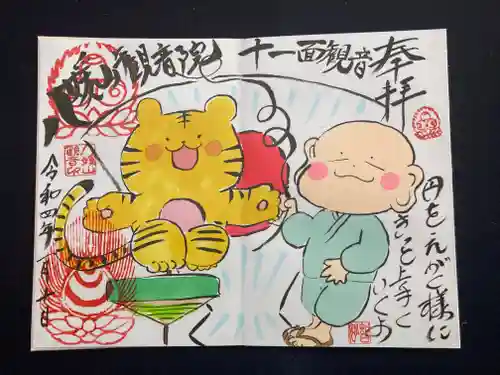 奉拝
十一面観音
八瞬山観音院
円をえがく様に
きっと上手く
いくよ
令和四年一月廿日